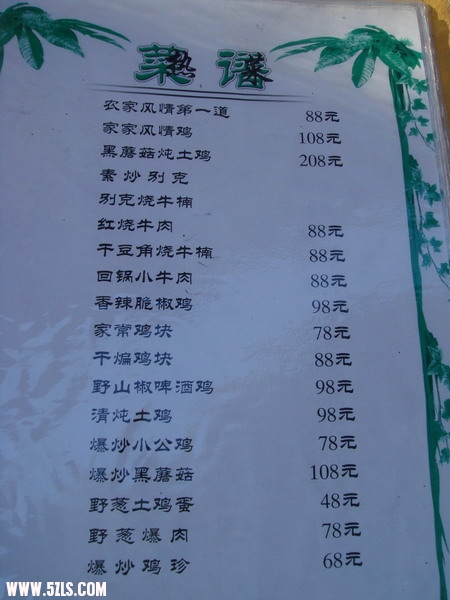 菜谱
热
农家风情第一道 88元
家家风情鸡 108元
黑蘑菇炖土鸡 208元
素炒别克
别克烧牛楠
红烧牛肉 88元
干豆角烧牛楠 88元
回锅小牛肉 88元
香辣脆椒鸡 98元
家常鸡块 78元
干煸鸡块 88元
野山椒啤酒鸡 98元
清炖土鸡 98元
爆炒小公鸡 78元
爆炒黑蘑菇 108元
野葱土鸡蛋 48元
野葱爆肉 78元
爆炒鸡珍 68元
WWW.5ZLS.COM